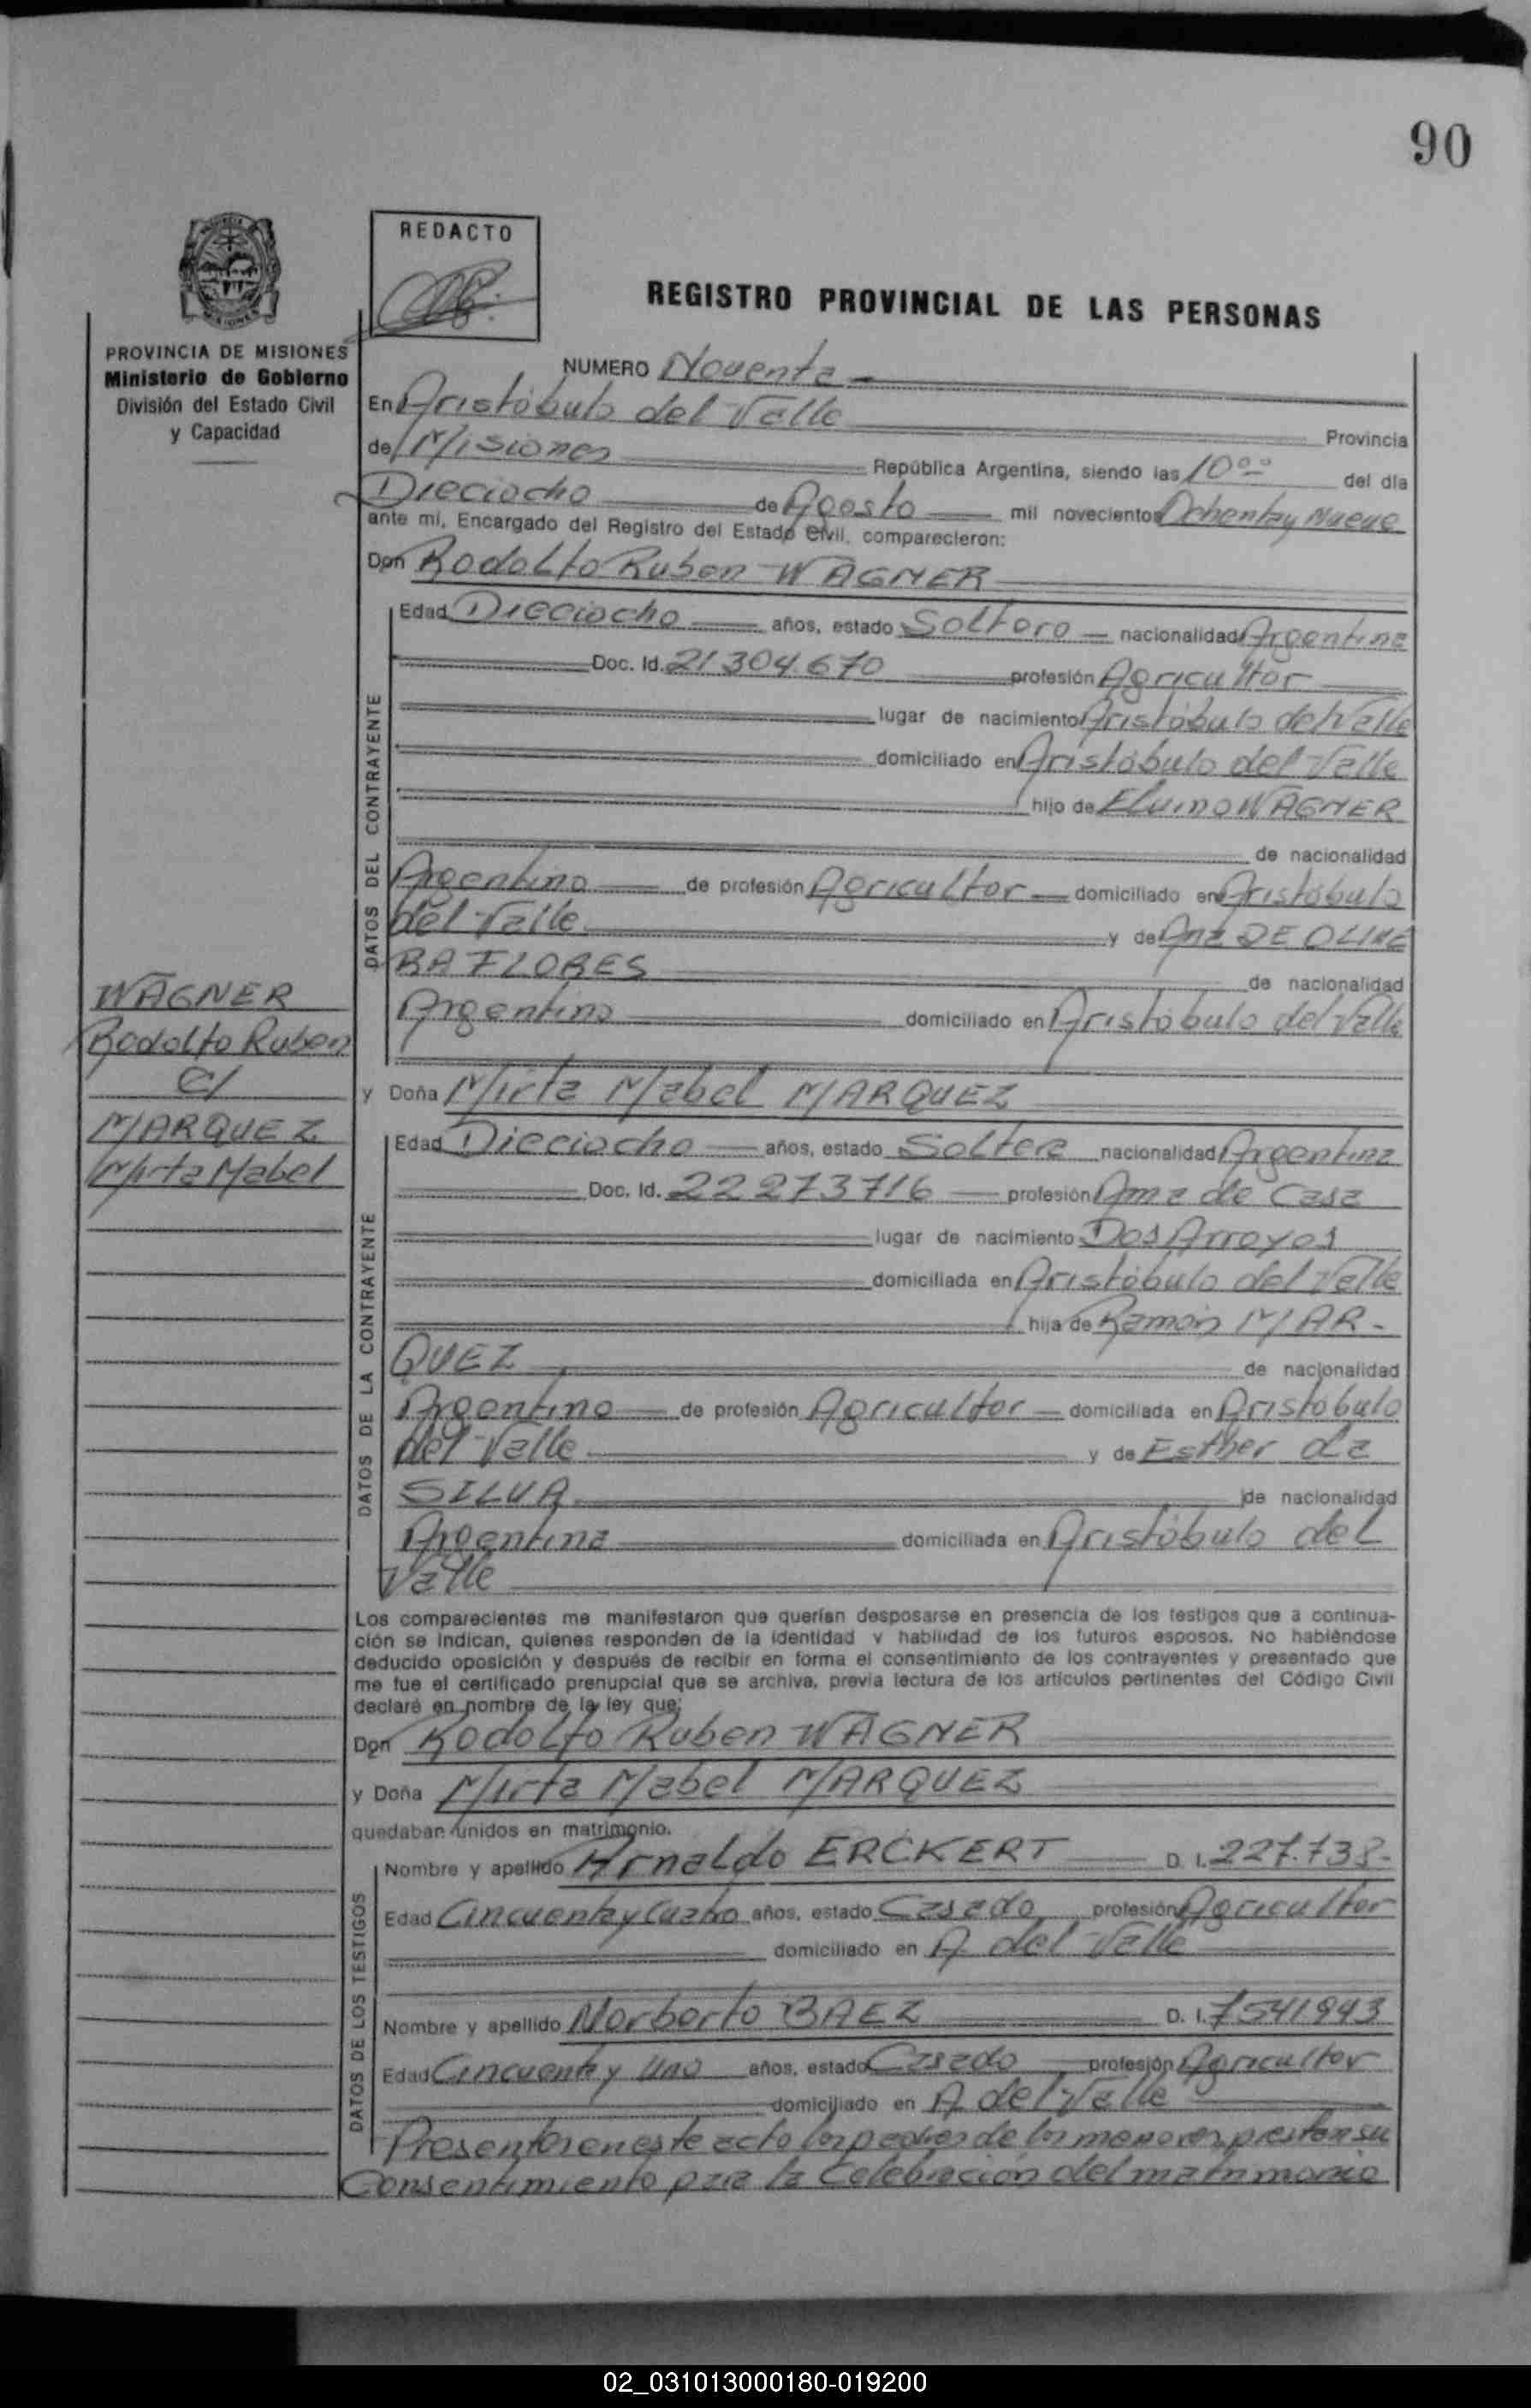 90
REDACTO
REGISTRO PROVINCIAL DE LAS PERSONAS
PROVINCIA DE MISIONES
Ministerio de Gobierno
División del Estado Civil
y Capacidad
NUMERO Noventa
En Aristóbulo del Valle Provincia
de Misiones República Argentina, siendo las 10°° del día
Dieciocho de Agosto mil novecientos Ochenta y Nueve
ante mí, Encargado del Registro del Estado Civil, comparecieron:
Don Rodolfo Ruben WAGNER
DATOS DEL CONTRAYENTE
Edad Dieciocho años, estado Soltero nacionalidad Argentina
Doc. Id. 21.304.670 profesión Agricultor
lugar de nacimiento Aristóbulo del Valle
domiciliado en Aristóbulo del Valle
hijo de Elvino WAGNER
de nacionalidad
Argentino de profesión Agricultor domiciliado en Aristóbulo
del Valle y de Ana DE OLIVE
RA FLORES de nacionalidad
Argentina domiciliado en Aristóbulo del Valle
WAGNER
Rodolfo Ruben
c/
MARQUEZ
Mirta Mabel
y Doña Mirta Mabel MARQUEZ
DATOS DE LA CONTRAYENTE
Edad Dieciocho años, estado Soltera nacionalidad Argentina
Doc. Id. 22273716 profesión Ama de Casa
lugar de nacimiento Dos Arroyos
domiciliada en Aristóbulo del Valle
hija de Ramón MAR-
QUEZ de nacionalidad
Argentino de profesión Agricultor domiciliada en Aristóbulo
del Valle y de Esther da
SILVA de nacionalidad
Argentina domiciliada en Aristóbulo del
Valle
Los comparecientes me manifestaron que querían desposarse en presencia de los testigos que a continua-
ción se indican, quienes responden de la identidad y habilidad de los futuros esposos. No habiéndose
deducido oposición y después de recibir en forma el consentimiento de los contrayentes y presentado que
me fue el certificado prenupcial que se archiva, previa lectura de los artículos pertinentes del Código Civil
declaré en nombre de la ley que:
Don Rodolfo Ruben WAGNER
y Doña Mirta Mabel MARQUEZ
quedaban unidos en matrimonio.
DATOS DE LOS TESTIGOS
Nombre y apellido Arnaldo ERCKERT D. I. 227.738-
Edad Cincuenta y Cuatro años, estado Casado profesión Agricultor
domiciliado en A. del Valle
Nombre y apellido Norberto BAEZ D. I. 7541943
Edad Cincuenta y Uno años, estado Casado profesión Agricultor
domiciliado en A. del Valle
Presentes en este acto los padres de los menores prestan su
Consentimiento para la Celebración del matrimonio
02_031013000180-019200